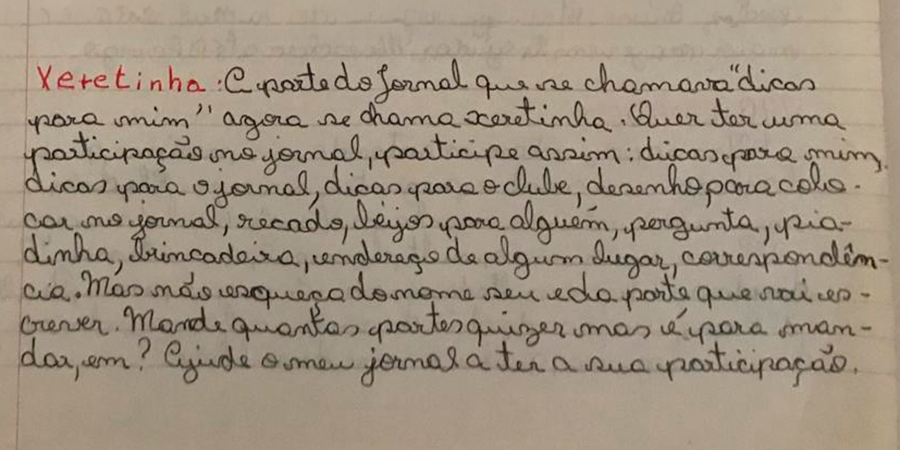 Xeretinha: A parte do Jornal que se chamava "dicas
para mim" agora se chama xeretinha. Quer ter uma
participação no jornal, participe assim: dicas para mim,
dicas para o jornal, dicas para o clube, desenho para colo-
car no jornal, recado, beijos para alguém, pergunta, pia-
dinha, brincadeira, endereço de algum lugar, correspondên-
cia. Mas não esqueça do nome seu e da parte que vai es-
crever. Mande quantas partes quizer mas é para man-
dar, em? Ajude o meu jornal a ter a sua participação.